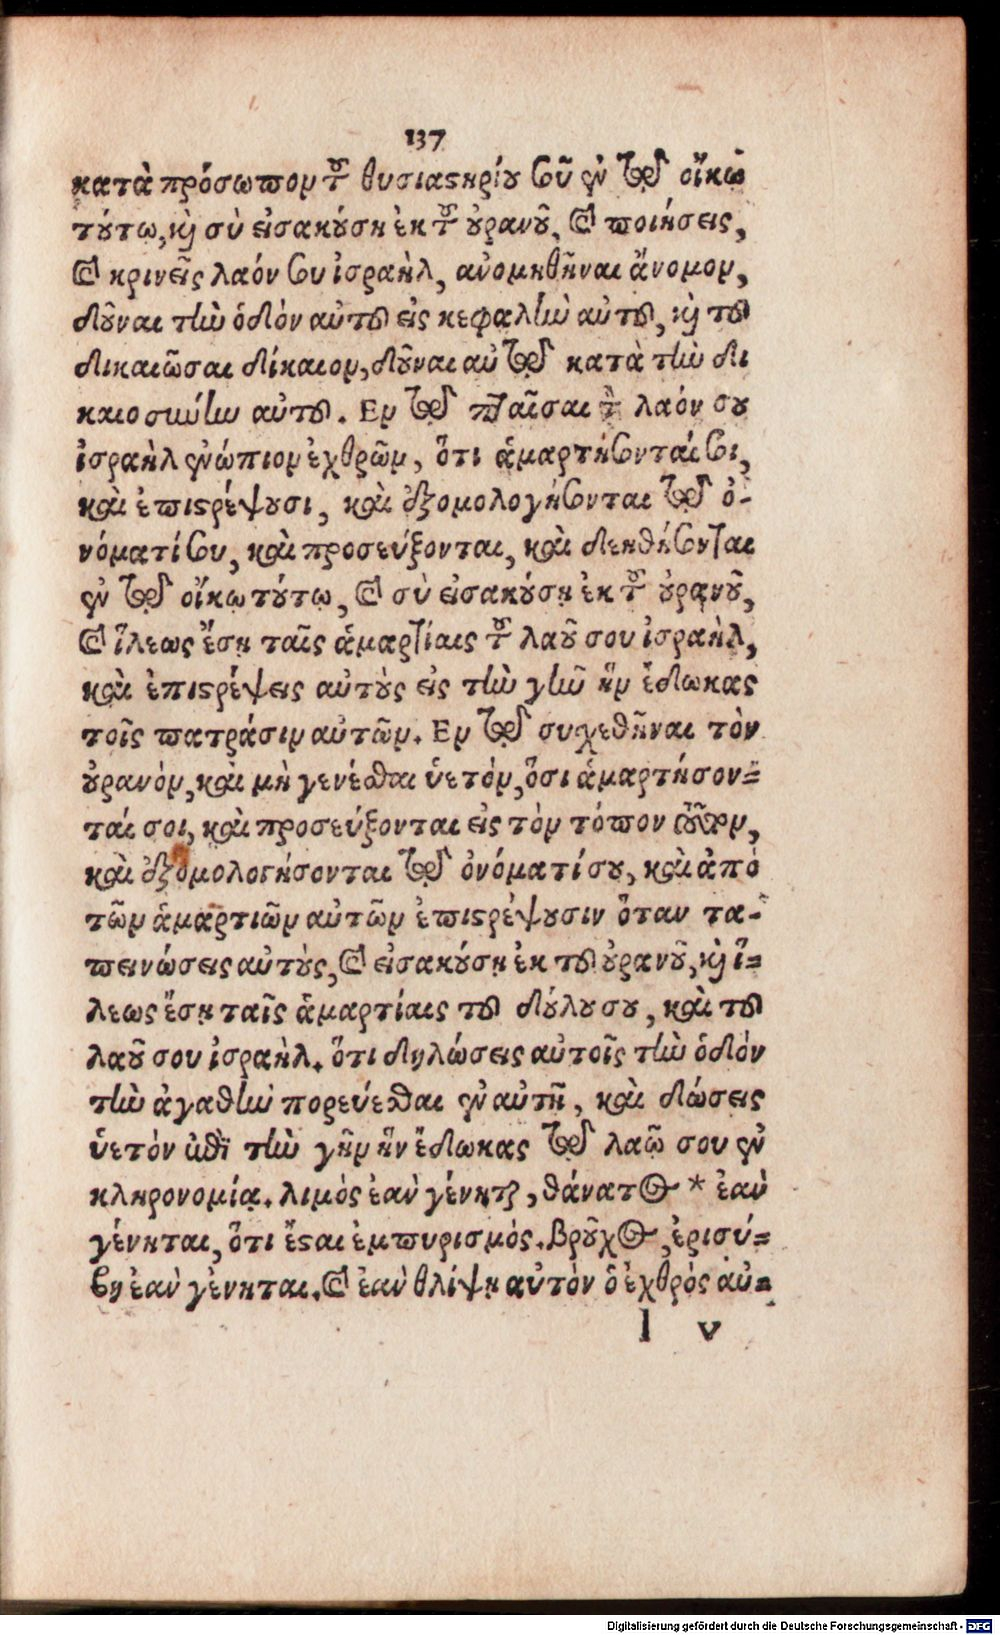 137
κατὰ πρόσωπον τοῦ θυσιαστηρίου σοῦ ἐν τῷ οἴκῳ
τούτῳ, καὶ σὺ εἰσακούσῃ ἐκ τοῦ οὐρανοῦ, καὶ ποιήσεις,
καὶ κρινεῖς λαόν σου ἰσραὴλ, ἀνομηθῆναι ἄνομον,
δοῦναι τὴν ὁδὸν αὐτοῦ εἰς κεφαλὴν αὐτοῦ, καὶ τοῦ
δικαιῶσαι δίκαιον, δοῦναι αὐτῷ κατὰ τὴν δι
καιοσύνην αὐτοῦ. Εν τῷ πταῖσαι τὸν λαόν σου
ἰσραὴλ ἐνώπιον ἐχθρῶν, ὅτι ἁμαρτήσονταί σοι,
καὶ ἐπιστρέψουσι, καὶ ἐξομολογήσονται τῷ ὀ-
νόματί σου, καὶ προσεύξονται, καὶ δεηθήσονται
ἐν τῷ οἴκῳ τούτῳ, καὶ σὺ εἰσακούσῃ ἐκ τοῦ οὐρανοῦ,
καὶ ἵλεως ἔσῃ ταῖς ἁμαρτίαις τοῦ λαοῦ σου ἰσραὴλ,
καὶ ἐπιστρέψεις αὐτοὺς εἰς τὴν γῆν ἣν ἔδωκας
τοῖς πατράσιν αὐτῶν. Εν τῷ συχεθῆναι τὸν
οὐρανὸν, καὶ μὴ γενέσθαι ὑετόν, ὅσι ἁμαρτήσον-
ταί σοι, καὶ προσεύξονται εἰς τὸν τόπον τοῦτον,
καὶ ἐξομολογήσονται τῷ ὀνόματί σου, καὶ ἀπὸ
τῶν ἁμαρτιῶν αὐτῶν ἐπιστρέψουσιν ὅταν τα-
πεινώσεις αὐτοὺς, καὶ εἰσακούσῃ ἐκ τοῦ οὐρανοῦ, καὶ ἵ-
λεως ἔσῃ ταῖς ἁμαρτίαις τοῦ δούλου σου, καὶ τοῦ
λαοῦ σου ἰσραὴλ. ὅτι δηλώσεις αὐτοῖς τὴν ὁδὸν
τὴν ἀγαθὴν πορεύεσθαι ἐν αὐτῇ, καὶ δώσεις
ὑετὸν ἐπὶ τὴν γῆν ἣν ἔδωκας τῷ λαῷ σου ἐν
κληρονομίᾳ. λιμὸς ἐὰν γένηται, θάνατος * ἐὰν
γένηται, ὅτι ἔσται ἐμπυρισμός. βροῦχος, ἐρισύ-
βη ἐὰν γένηται. καὶ ἐὰν θλίψῃ αὐτὸν ὁ ἐχθρὸς αὐ-
l v
Digitalisierung gefördert durch die Deutsche Forschungsgemeinschaft - DFG